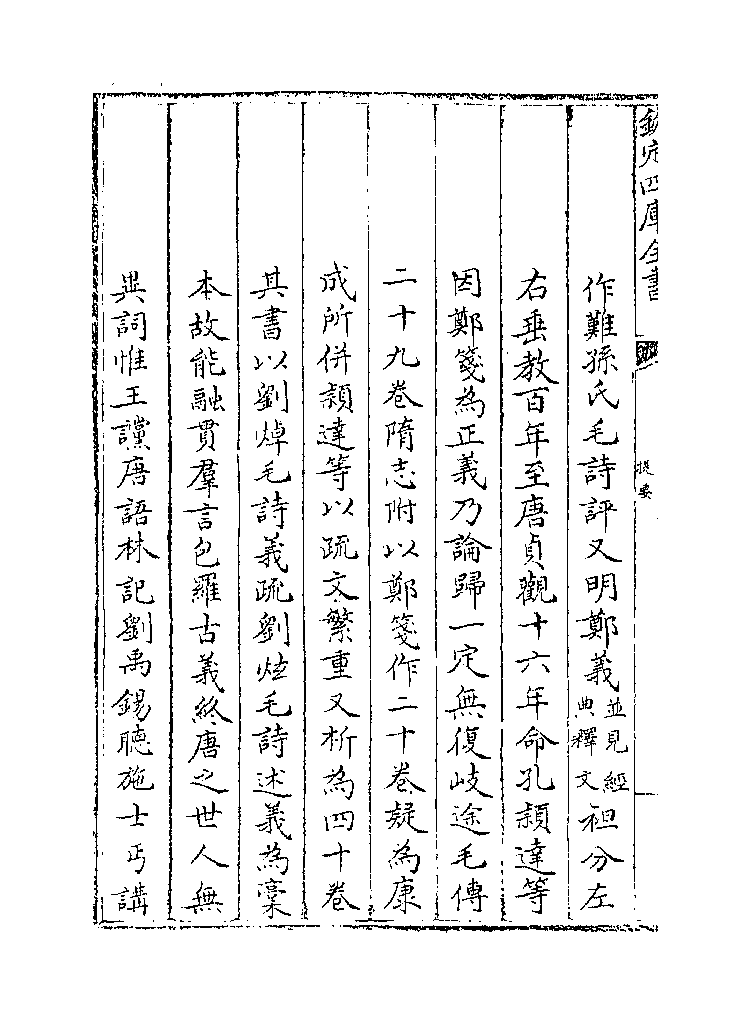 欽定四庫全書
提要
作難孫氏毛詩評又明鄭義並見經典釋文袒分左
右垂教百年至唐貞觀十六年命孔穎達等
因鄭箋為正義乃論歸一定無復岐途毛傳
二十九卷隋志附以鄭箋作二十卷疑為康
成所併穎達等以疏文繁重又析為四十卷
其書以劉焯毛詩義疏劉炫毛詩述義為稾
本故能融貫羣言包羅古義終唐之世人無
異詞惟王讜唐語林記劉禹錫聽施士丐講